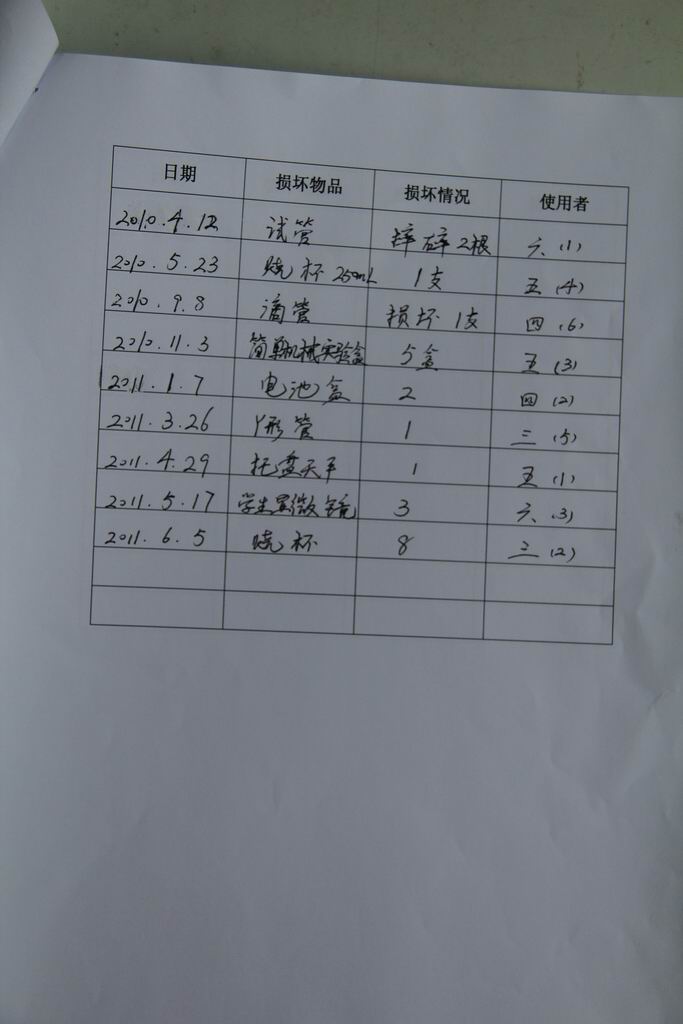 日期 损坏物品 损坏情况 使用者
2010.4.12 试管 摔碎2根 六(1)
2010.5.23 烧杯250mL 1支 五(4)
2010.9.8 滴管 损坏1支 四(6)
2010.11.3 简单机械实验盒 5盒 五(3)
2011.1.7 电池盒 2 四(2)
2011.3.26 Y形管 1 三(5)
2011.4.29 托盘天平 1 五(1)
2011.5.17 学生显微镜 3 六(3)
2011.6.5 烧杯 8 三(2)